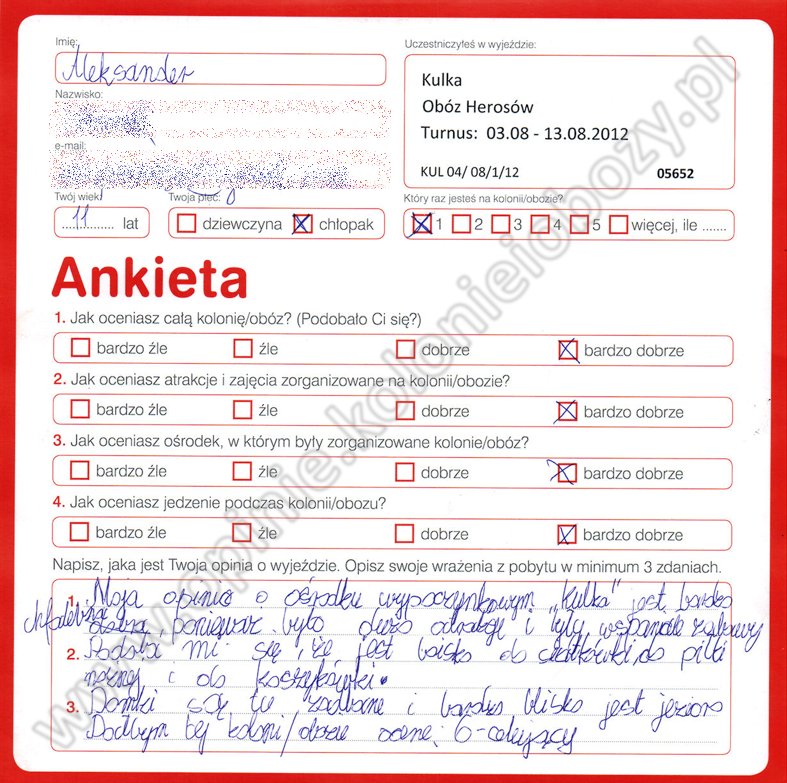 Imię:
Aleksander
Uczestniczyłeś w wyjeździe:
Kulka
Obóz Herosów
Turnus: 03.08 - 13.08.2012
KUL 04/ 08/1/12 05652
Nazwisko:
e-mail:
Twój wiek:
11 lat
Twoja płeć:
dziewczyna chłopak
Który raz jesteś na kolonii/obozie?
1 2 3 4 5 więcej, ile .......
Ankieta
1. Jak oceniasz całą kolonię/obóz? (Podobało Ci się?)
bardzo źle źle dobrze bardzo dobrze
2. Jak oceniasz atrakcje i zajęcia zorganizowane na kolonii/obozie?
bardzo źle źle dobrze bardzo dobrze
3. Jak oceniasz ośrodek, w którym były zorganizowane kolonie/obóz?
bardzo źle źle dobrze bardzo dobrze
4. Jak oceniasz jedzenie podczas kolonii/obozu?
bardzo źle źle dobrze bardzo dobrze
Napisz, jaka jest Twoja opinia o wyjeździe. Opisz swoje wrażenia z pobytu w minimum 3 zdaniach.
1. Moja opinia o ośrodku wypoczynkowym "Kulka" jest bardzo
ponieważ było dużo atrakcji i były wspaniałe zabawy
2. Podoba mi się, że jest boisko do siatkówki, do piłki
nożnej i do koszykówki.
3. Domki są tu zadbane i bardzo blisko jest jezioro
Dałbym tej koloni/obozie ocenę: 6-celujący
www.opinie.kolonieiobozy.pl